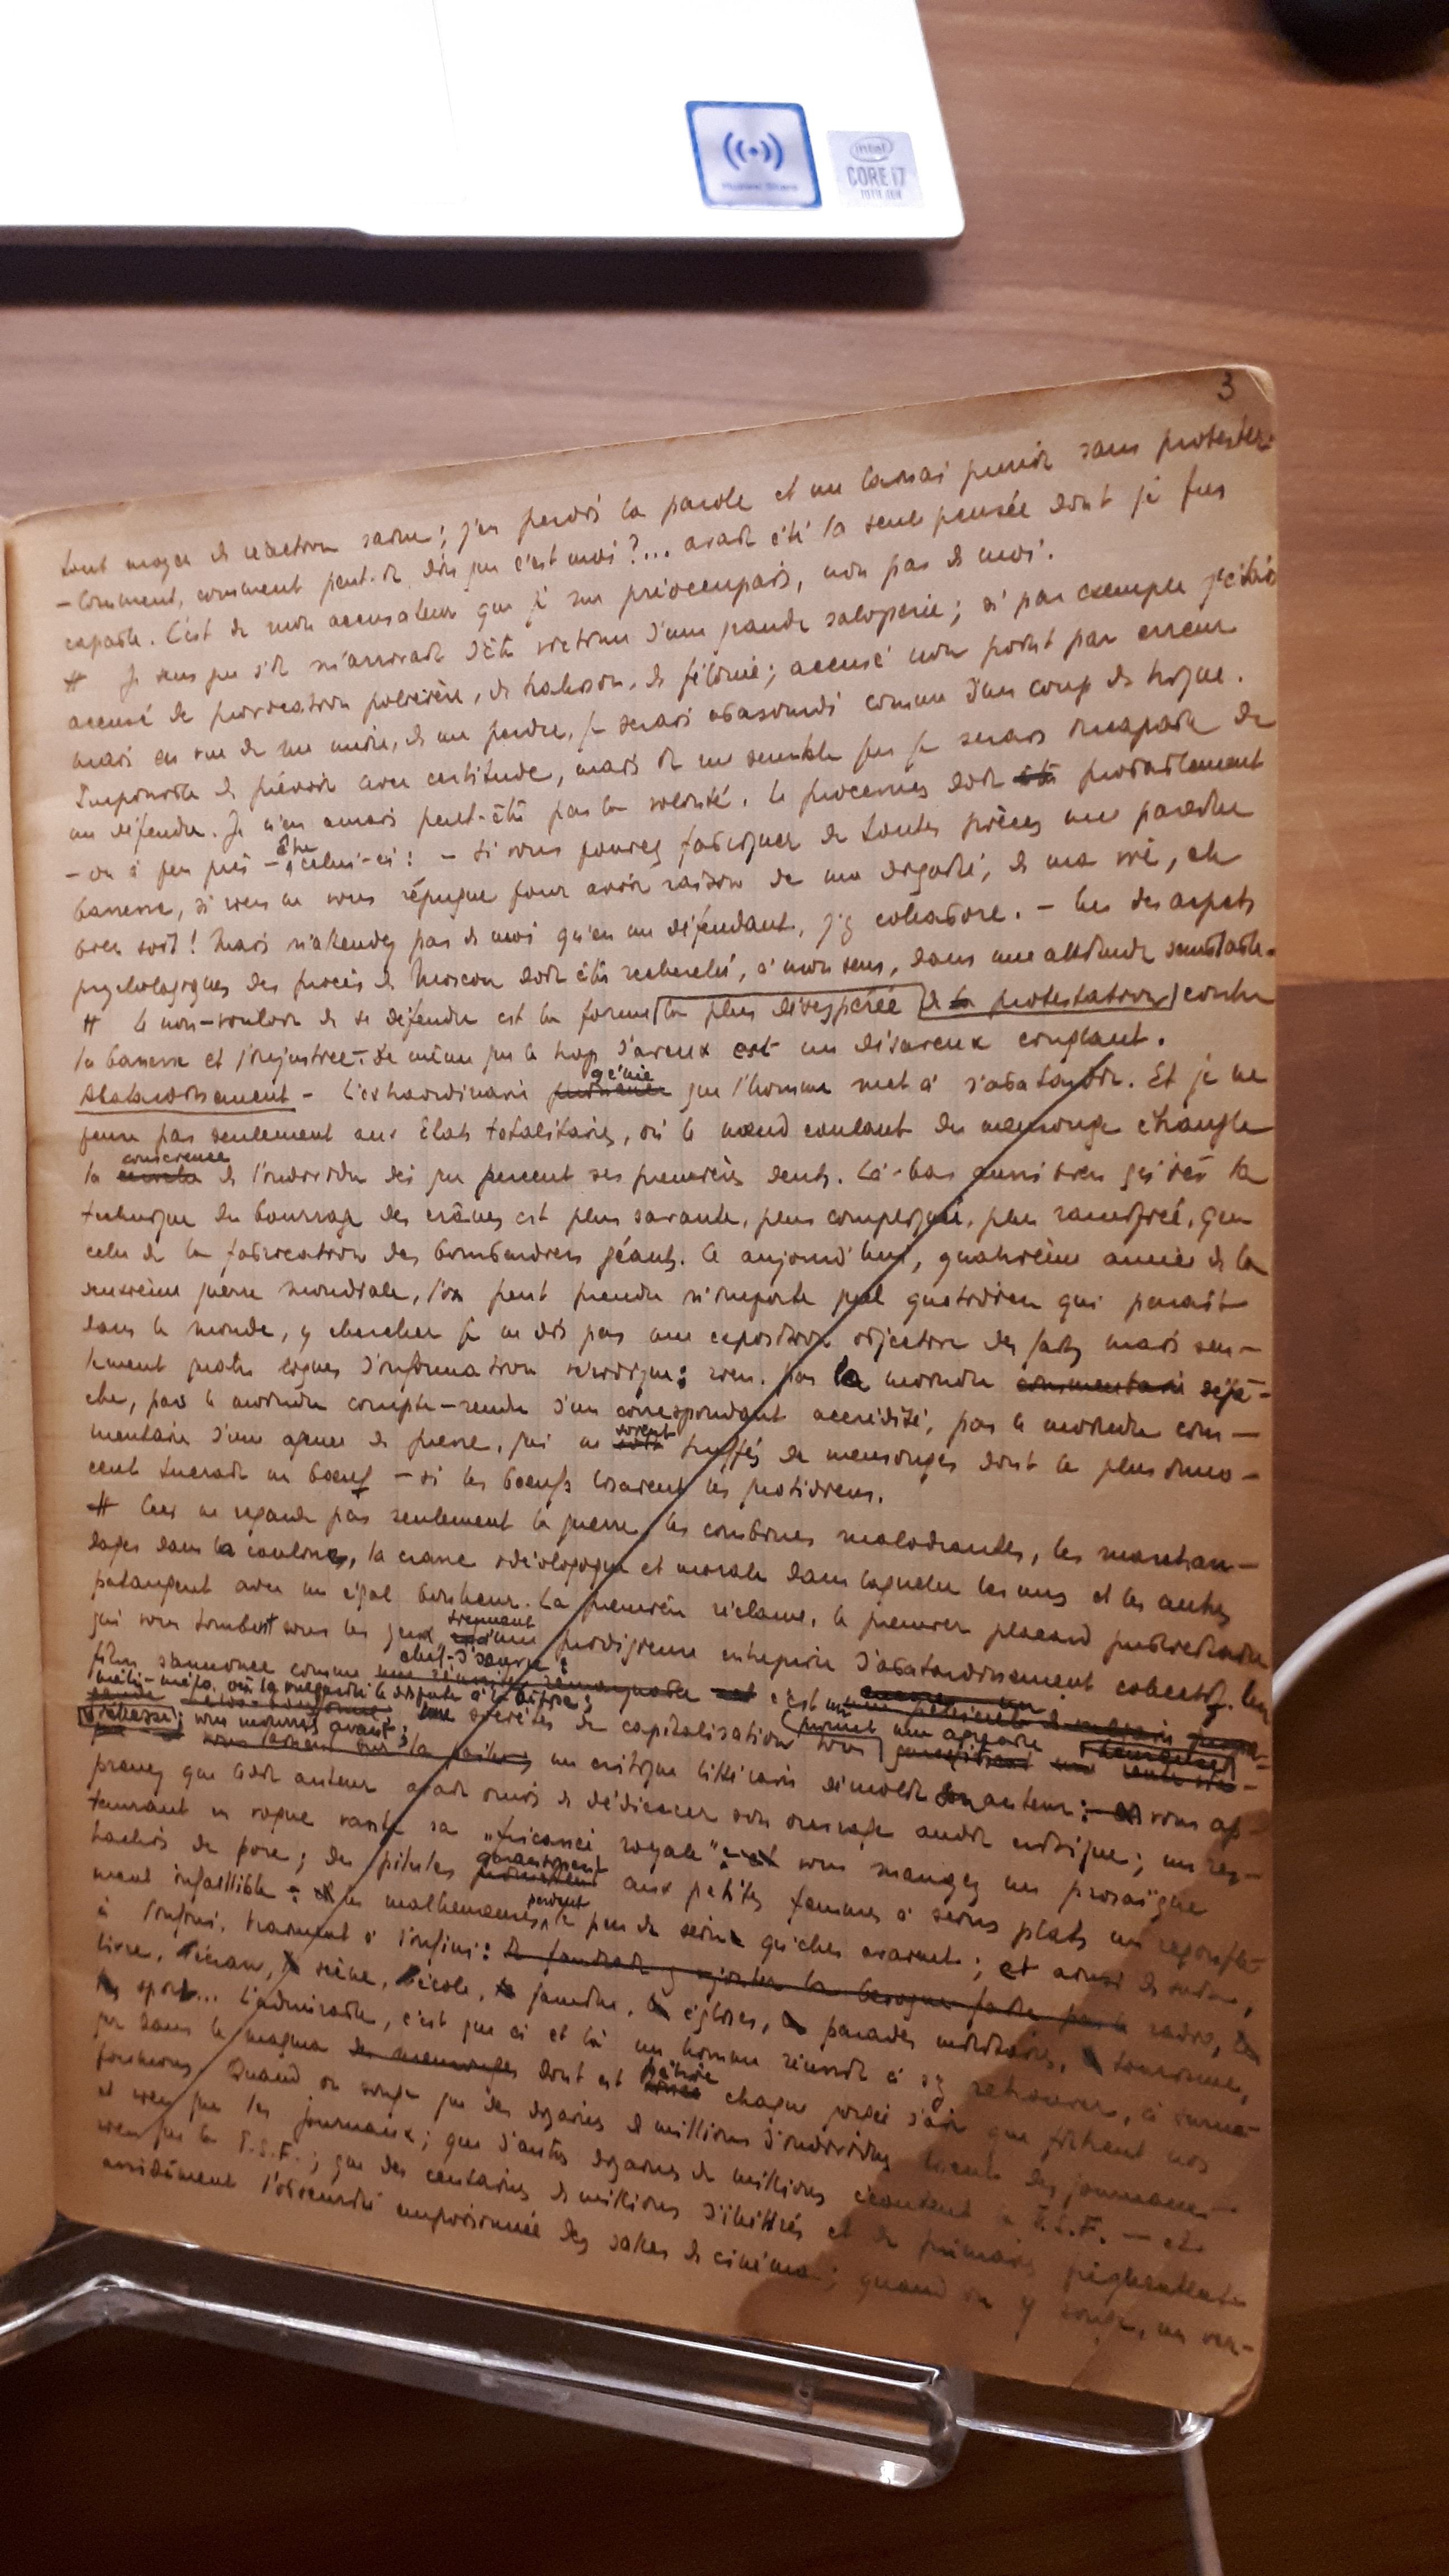 Huawei Share
intel
CORE i7
10TH GEN
3
tout moyen de réaction saine; j'en perdis la parole et me laissai punir sans protester.
– Comment, comment peut-il dire que c'est moi?... avait été la seule pensée dont je fus
capable. C'est de mon accusateur que je me préoccupais, non pas de moi.
# Je sens que s'il m'arrivait d'être victime d'une grande saloperie; si par exemple j'étais
accusé de provocation policière, de trahison, de félonie; accusé non point par erreur
mais en vue de me nuire, de me perdre, je serais abasourdi comme d'un coup de trique.
Impossible de prévoir avec certitude, mais il me semble que je serais incapable de
me défendre. Je n'en aurais peut-être pas la volonté. Le processus doit probablement
– ou à peu près – être celui-ci: – Si vous pouvez fabriquer de toutes pièces une pareille
bassesse, si rien ne vous répugne pour avoir raison de ma dignité, de ma vie, eh
bien soit! Mais n'attendez pas de moi qu'en me défendant, j'y collabore. – Un des aspects
psychologiques des procès de Moscou doit être recherché, à mon sens, dans une attitude semblable.
# Le non-vouloir de se défendre est la forme la plus désespérée de la protestation contre
la bassesse et l'injustice. De même que le trop d'aveux est un désaveu cinglant.
Abâtardissement – L'extraordinaire génie que l'homme met à s'abâtardir. Et je ne
pense pas seulement aux États totalitaires, où le nœud coulant du mensonge étrangle
la conscience de l'individu dès que percent ses premières dents. Là-bas aussi bien qu'ici la
technique du bourrage des crânes est plus savante, plus compliquée, plus ramifiée, que
celle de la fabrication des bombardiers géants. Ce aujourd'hui, quatrième année de la
deuxième guerre mondiale, l'on peut prendre n'importe quel quotidien qui paraît
dans le monde, y chercher je ne dis pas une exposition objective des faits mais seu-
lement quatre lignes d'information véridique: rien. Pas la moindre commentaire dépê-
che, pas le moindre compte-rendu d'un correspondant accrédité, pas le moindre com-
mentaire d'une agence de presse, qui ne soient truffés de mensonges dont le plus inno-
cent tuerait un bœuf – si les bœufs lisaient les quotidiens.
# Ceci ne regarde pas seulement la guerre, les combines malodorantes, les marchan-
dages dans la coulisse, la crasse idéologique et morale dans laquelle les uns et les autres
pataugent avec un égal bonheur. La première réclame, le premier placard publicitaire
qui vous tombent sous les yeux viennent d'une prodigieuse entreprise d'abâtardissement collectif. Un
film s'annonce comme chef-d'œuvre: c'est un
méli-mélo où la mégarde le dispute à la bêtise;
vous mourrez avant; une société de capitalisation vous promet une agréable
vieillesse; un critique littéraire démolit son auteur: vous ap-
prenez que ledit auteur avait omis de dédicacer son ouvrage audit critique; un res-
taurant en vogue vante sa „fricassée royale" vous mangez un prosaïque
hachis de porc; des pilules garantissent aux petites femmes à seins plats un regonfle-
ment infaillible: les malheureuses perdent le peu de seins qu'elles avaient; et ainsi de suite,
à l'infini, vraiment à l'infini: il faudrait y ajouter la besogne faite par la radio, le
livre, l'écran, scène, école, familles, églises, parades militaires, tourisme,
sport... L'admirable, c'est que ci et là un homme réussit à s'y retrouver, à surna-
ger dans le magma des mensonges dont est pétrie chaque gorgée d'air que filtrent nos
poumons. Quand on songe que des dizaines de millions d'individus lisent des journaux –
et rien que les journaux; que d'autres dizaines de millions écoutent la T.S.F. – et
rien que la T.S.F.; que des centaines de millions d'illettrés et de primaires fréquentent
assidûment l'obscurité empoisonnée des salles de cinéma; quand on y songe, un ver-